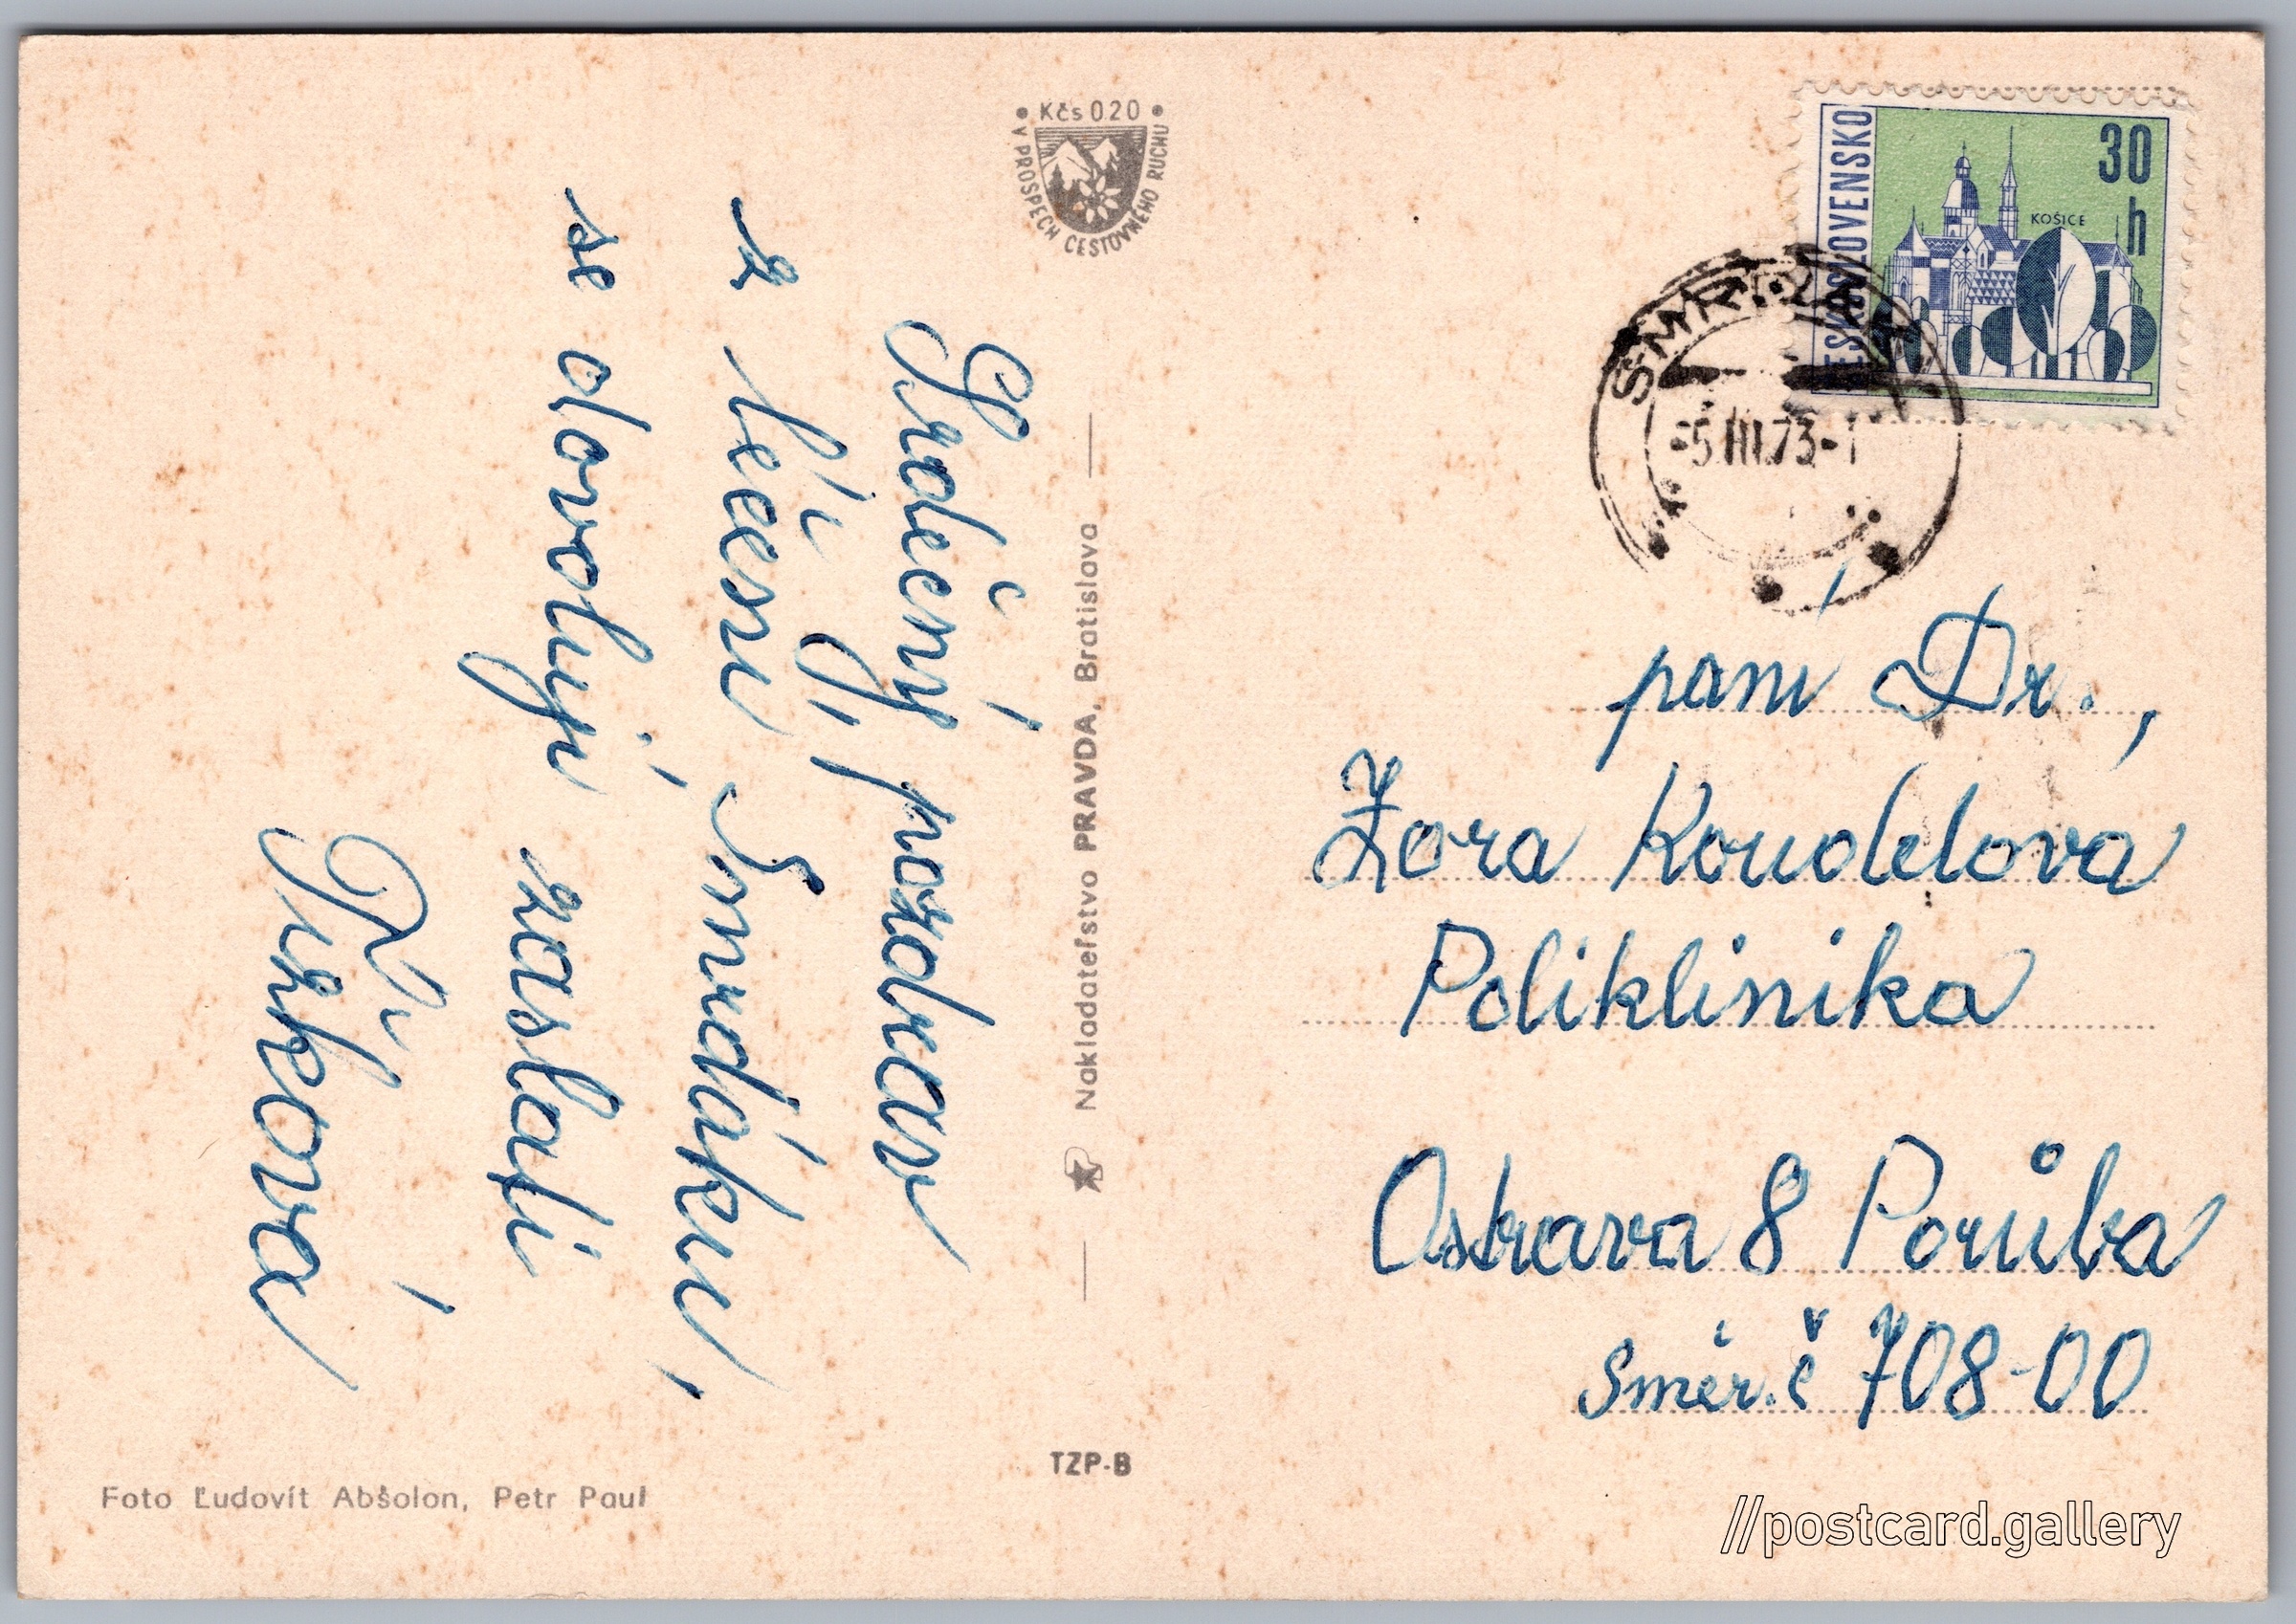 Kčs 0.20
V PROSPECH CESTOVNÉHO RUCHU
ČESKOSLOVENSKO
30
h
KOŠICE
-5.III.73-1
Srdečný pozdrav
z léčení, Smrdáků,
se dovolují zaslati
Nakladateľstvo PRAVDA, Bratislava
paní Dr.,
Zora Koudelova
Poliklinika
Ostrava 8 Porůba
Směr.č 708-00
TZP-B
Foto Ľudovít Absolon, Petr Paul
//postcard.gallery